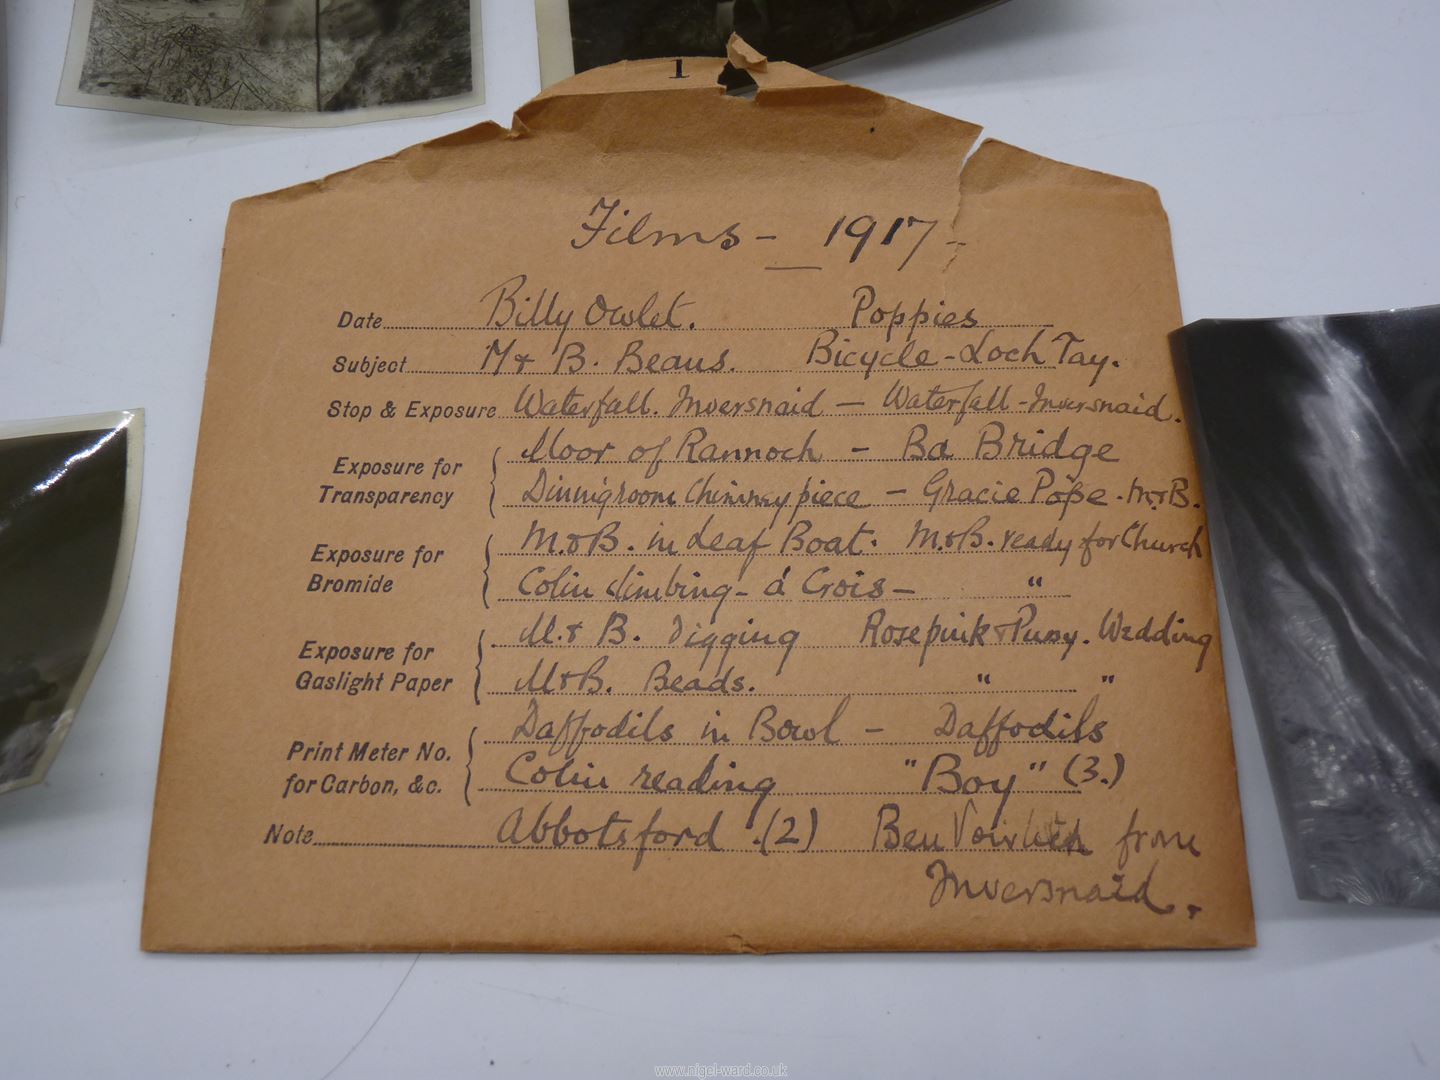 1
Films - 1917 -
Date Billy Owlet. Poppies
Subject M & B. Beans. Bicycle - Loch Tay.
Stop & Exposure Waterfall. Inversnaid — Waterfall - Inversnaid.
Exposure for Transparency
Moor of Rannoch - Ba Bridge
Diningroom Chimneypiece - Gracie Pope. M&B.
Exposure for Bromide
M.&B. in Leaf Boat. M.&B. ready for Church
Colin climbing - a' Crois - "
Exposure for Gaslight Paper
M.& B. Digging Rosepink & Pussy. Wedding
M&B. Beads. " "
Print Meter No. for Carbon, &c.
Daffodils in Bowl - Daffodils
Colin reading "Boy" (3.)
Note Abbotsford .(2) Ben Voirlich from
Inversnaid.
www.nigel-ward.co.uk